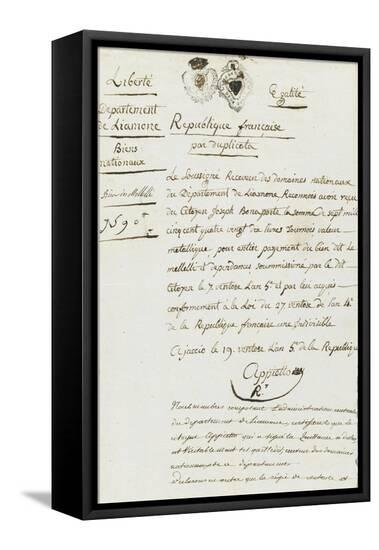 Liberté
Egalité
Departement
de Liamone
Biens
nationaux
Republique française
par duplicata
Le Soussigné Receveur des domaines nationaux
du Département de Liamone Reconnois avoir reçu
du Citoyen Joseph Bonaparte la somme de sept mille
cinq cent quatre vingt dix livres tournois valeur
metallique, pour entier payement du bien dit Le
melelli et dependances soummissioné par le dit
Citoyen le 7 ventose L'an 5e et par lui acquis
conformement à la Loi du 27 ventose de l'an 4e
de la République française une indivisible
Ajaccio le 19 ventose L'an 5e de la Republique
Appietto
Rr
7590
Nous membres composant l'administration centrale
du departement de Liamone, certifions que le
citoyen Appietto qui a signé la Quittance
est receveur des domaines
nationaux de ce departement